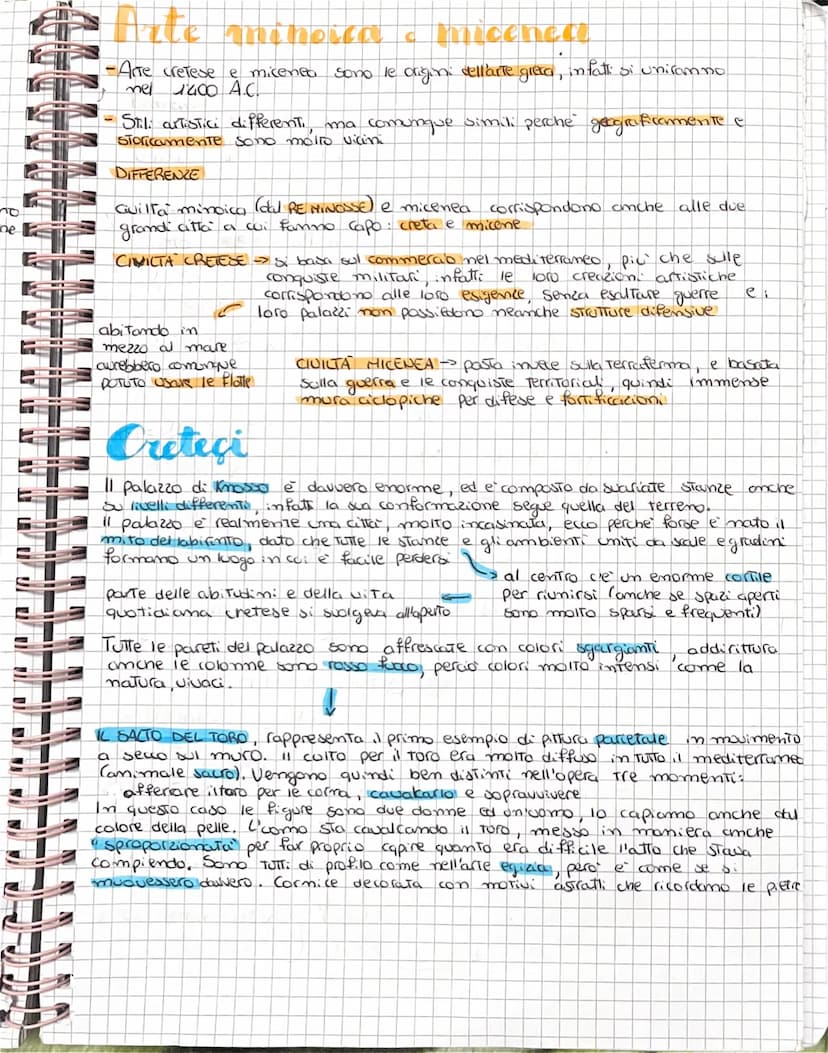 Arte minoica e micenea
- Arte cretese e micenea sono le origini dell'arte greca, infatti si uniranno
nel 1400 A.C.
- Stili artistici differenti, ma comunque simili perché geograficamente e
storicamente sono molto vicini
DIFFERENZE
Civiltà minoica (dal RE MINOSSE) e micenea corrispondono anche alle due
grandi città a cui fanno capo: creta e micene
CIVILTÀ CRETESE → si basa sul commercio nel mediterraneo, più che sulle
conquiste militari, infatti le loro creazioni artistiche
corrispondono alle loro esigenze, senza esaltare guerre e i
loro palazzi non possiedono neanche strutture difensive
abitando in
mezzo al mare
avrebbero comunque
potuto usare le flotte
CIVILTÀ MICENEA → posta invece sulla terraferma, e basata
sulla guerra e le conquiste territoriali, quindi immense
mura ciclopiche per difese e fortificazioni
Cretesi
Il palazzo di Knosso è davvero enorme, ed è composto da svariate stanze anche
su livelli differenti, infatti la sua conformazione segue quella del terreno.
Il palazzo è realmente una città, molto incasinata, ecco perché forse è nato il
mito del labirinto, dato che tutte le stanze e gli ambienti uniti da scale e gradini
formano un luogo in cui è facile perdersi
al centro c'è un enorme cortile
per riunirsi (anche se spazi aperti
sono molto sparsi e frequenti)
parte delle abitudini e della vita
quotidiana cretese si svolgeva all'aperto
Tutte le pareti del palazzo sono affrescate con colori sgargianti, addirittura
anche le colonne sono rosso fuoco, perciò colori molto intensi come la
natura, vivaci.
IL SALTO DEL TORO, rappresenta il primo esempio di pittura parietale in movimento
a secco sul muro. Il culto per il toro era molto diffuso in tutto il mediterraneo
(animale sacro). Vengono quindi ben distinti nell'opera tre momenti:
afferrare il toro per le corna, cavalcarlo e sopravvivere
In questo caso le figure sono due donne ed un uomo, lo capiamo anche dal
colore della pelle. L'uomo sta cavalcando il toro, messo in maniera anche
"sproporzionata" per far proprio capire quanto era difficile l'atto che stava
compiendo. Sono tutti di profilo come nell'arte egizia, però è come se si
muovessero davvero. Cornice decorata con motivi astratti che ricordano le pietre